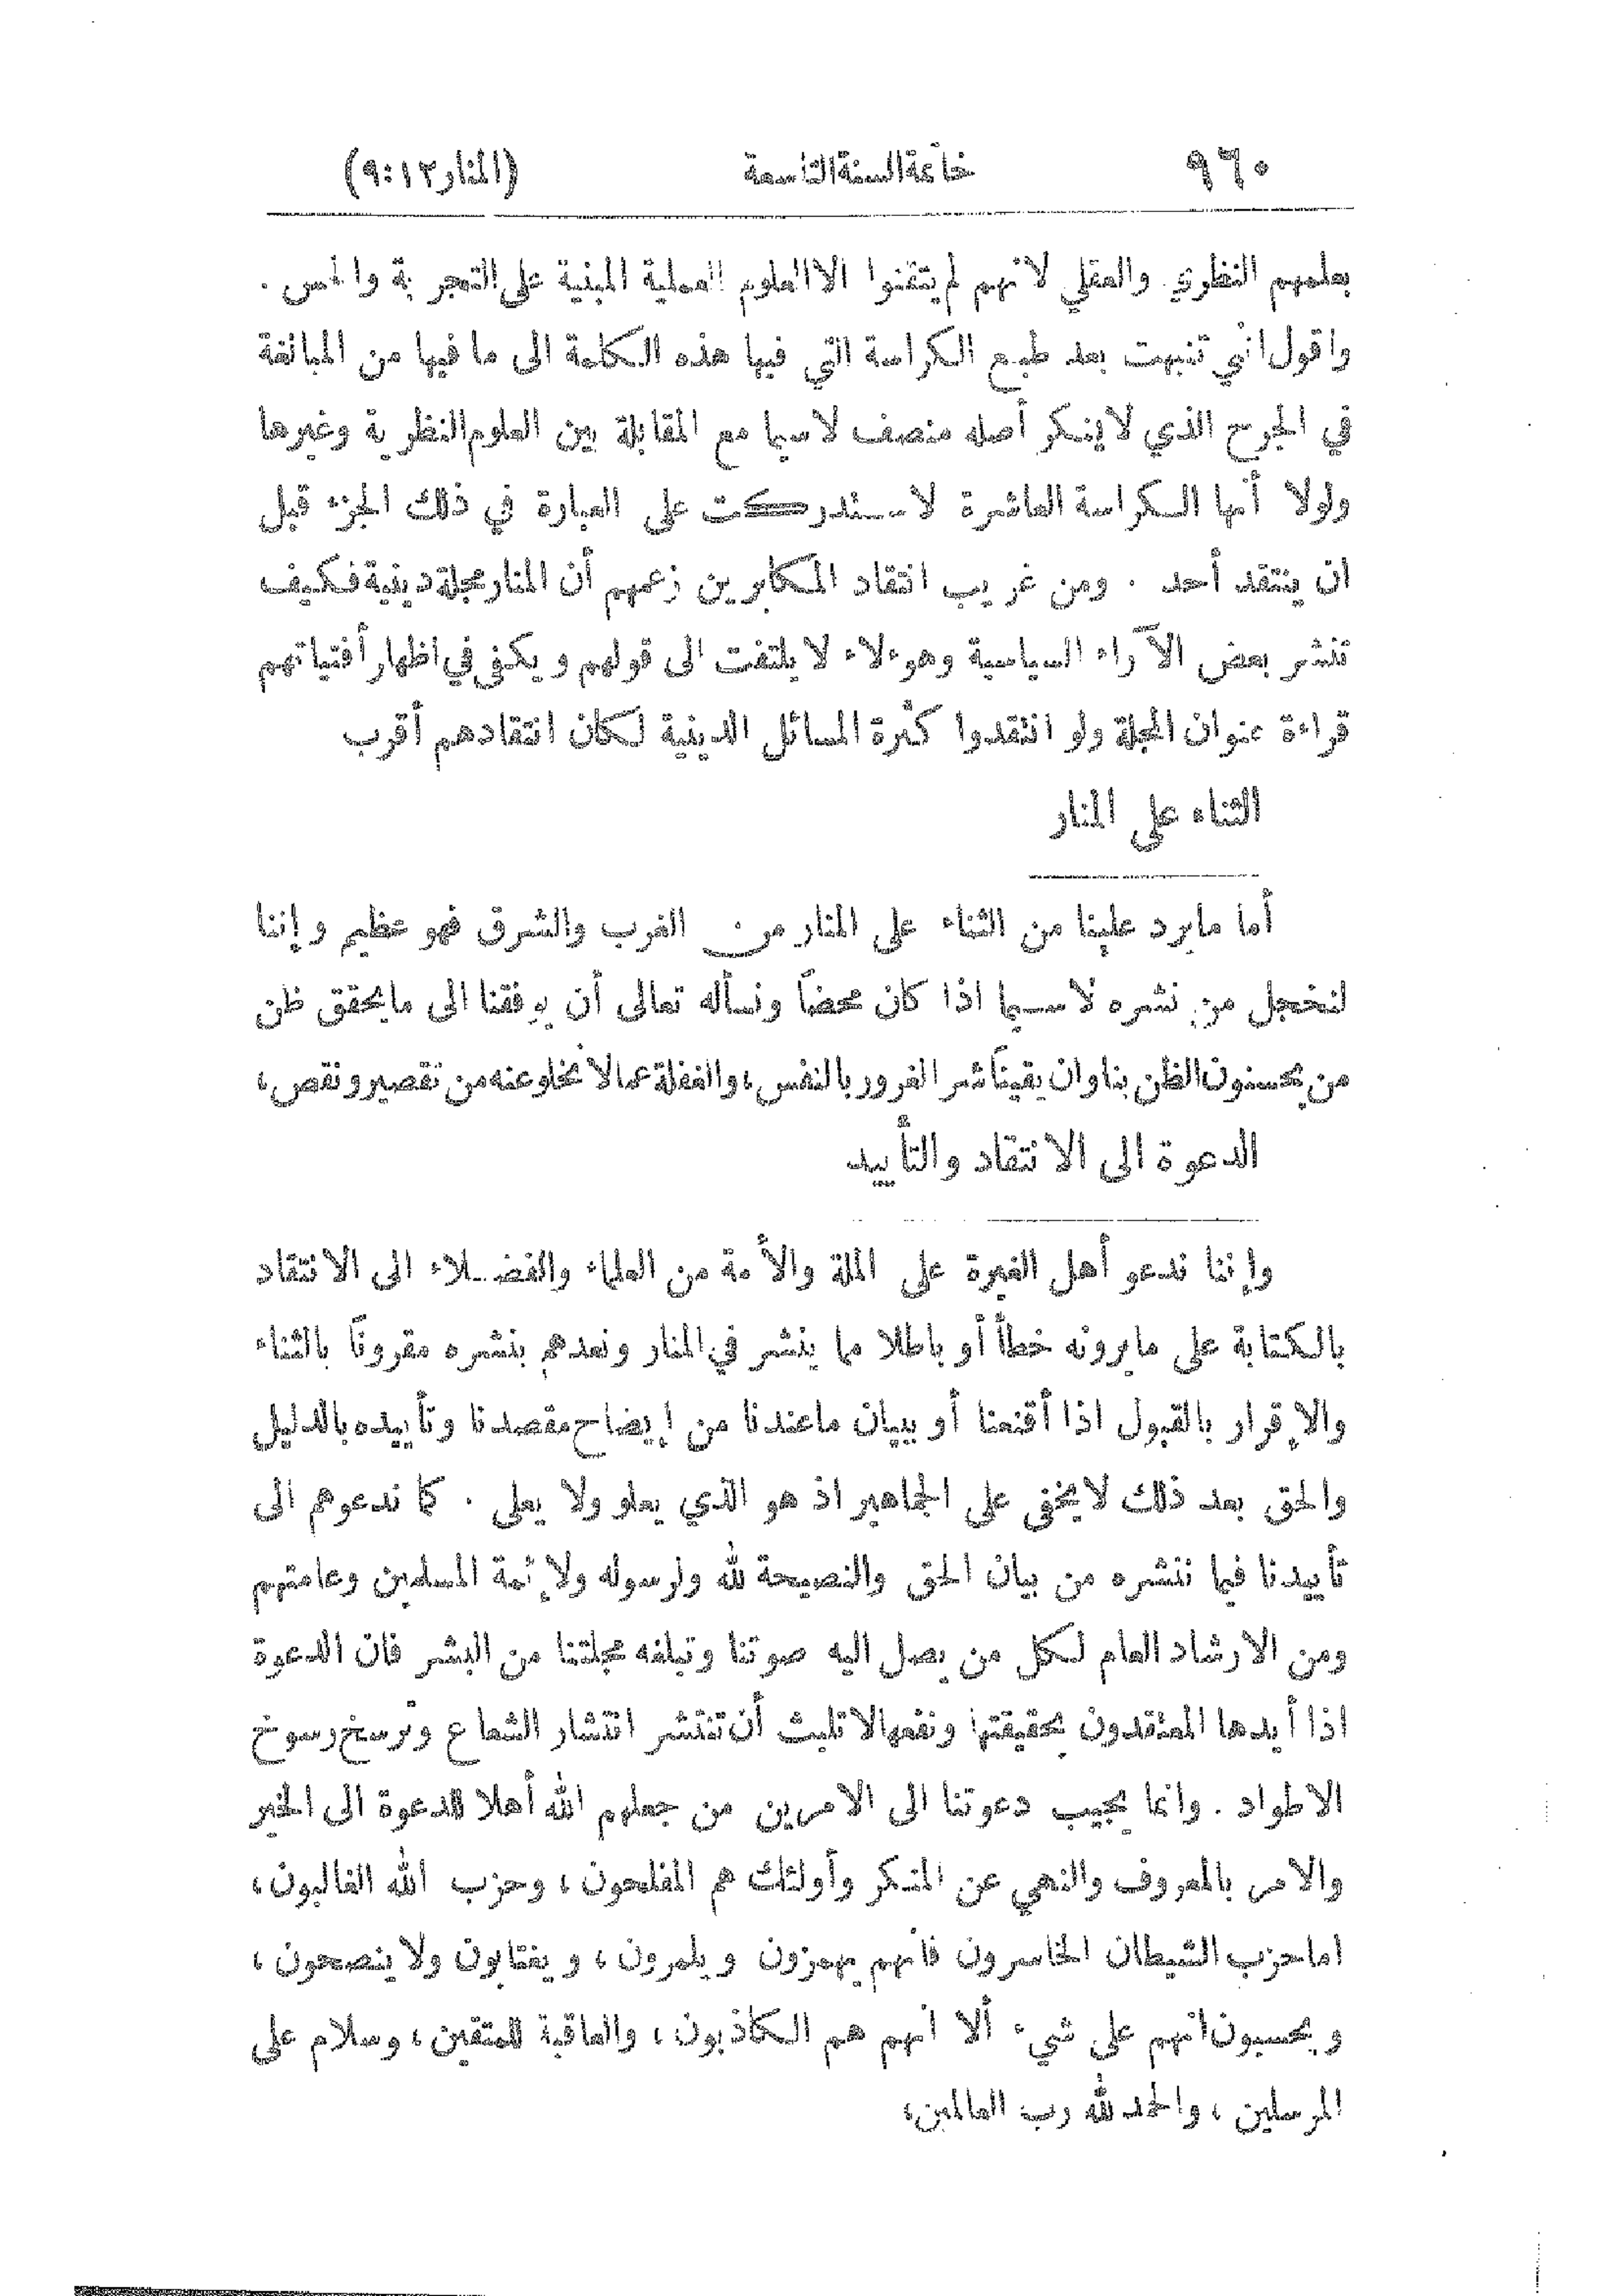 ٩٦٠ خاتمة السنة التاسعة (المنار ١٢:٩)
بعلمهم النظري والعقلي لانهم لم يتقنوا الا العلوم العملية المبنية على التجربة والحس .
واقول اني تنبهت بعد طبع الكراسة التي فيها هذه الكلمة الى ما فيها من المبالغة
في الجرح الذي لا ينكر أصله منصف لاسيما مع المقابلة بين العلوم النظرية وغيرها
ولولا أنها الكراسة العاشرة لاستدركت على العبارة في ذلك الجزء قبل
ان ينتقد أحد . ومن غريب انتقاد المكابرين زعمهم أن المنار مجلة دينية فكيف
تنشر بعض الآراء السياسية وهوءلاء لا يلتفت الى قولهم ويكفي في اظهار أفتياتهم
قراءة عنوان المجلة ولو انتقدوا كثرة المسائل الدينية لكان انتقادهم أقرب
الثناء على المنار
أما مايرد علينا من الثناء على المنار من الغرب والشرق فهو عظيم وإننا
لنخجل من نشره لاسيما اذا كان محضاً ونسأله تعالى أن يوفقنا الى مايحقق ظن
من يحسنون الظن بنا وان يقينا شر الغرور بالنفس، والغفلة عما لا تخلو عنه من تقصير ونقص،
الدعوة الى الانتقاد والتأييد
وإننا ندعو أهل الغيرة على الملة والأمة من العلماء والفضلاء الى الانتقاد
بالكتابة على مايرونه خطأ أو باطلا مما ينشر في المنار ونعدهم بنشره مقروناً بالثناء
والإقرار بالقبول اذا أقنعنا أو ببيان ماعندنا من إيضاح مقصدنا وتأييده بالدليل
والحق بعد ذلك لايخفى على الجماهير اذ هو الذي يعلو ولا يعلى . كما ندعوهم الى
تأييدنا فيما ننشره من بيان الحق والنصيحة لله ولرسوله ولإئمة المسلمين وعامتهم
ومن الارشاد العام لكل من يصل اليه صوتنا وتبلغه مجلتنا من البشر فان الدعوة
اذا أيدها المعتقدون بحقيقتها ونفعها لا تلبث أن تنتشر انتشار الشعاع وترسخ رسوخ
الاطواد . وانما يجيب دعوتنا الى الامرين من جعلهم الله أهلا للدعوة الى الخير
والامر بالمعروف والنهي عن المنكر وأولئك هم المفلحون ، وحزب الله الغالبون ،
اما حزب الشيطان الخاسرون فانهم يهمزون ويلمزون ، ويغتابون ولا ينصحون ،
ويحسبون انهم على شيء ألا انهم هم الكاذبون ، والعاقبة للمتقين ، وسلام على
المرسلين ، والحمد لله رب العالمين،